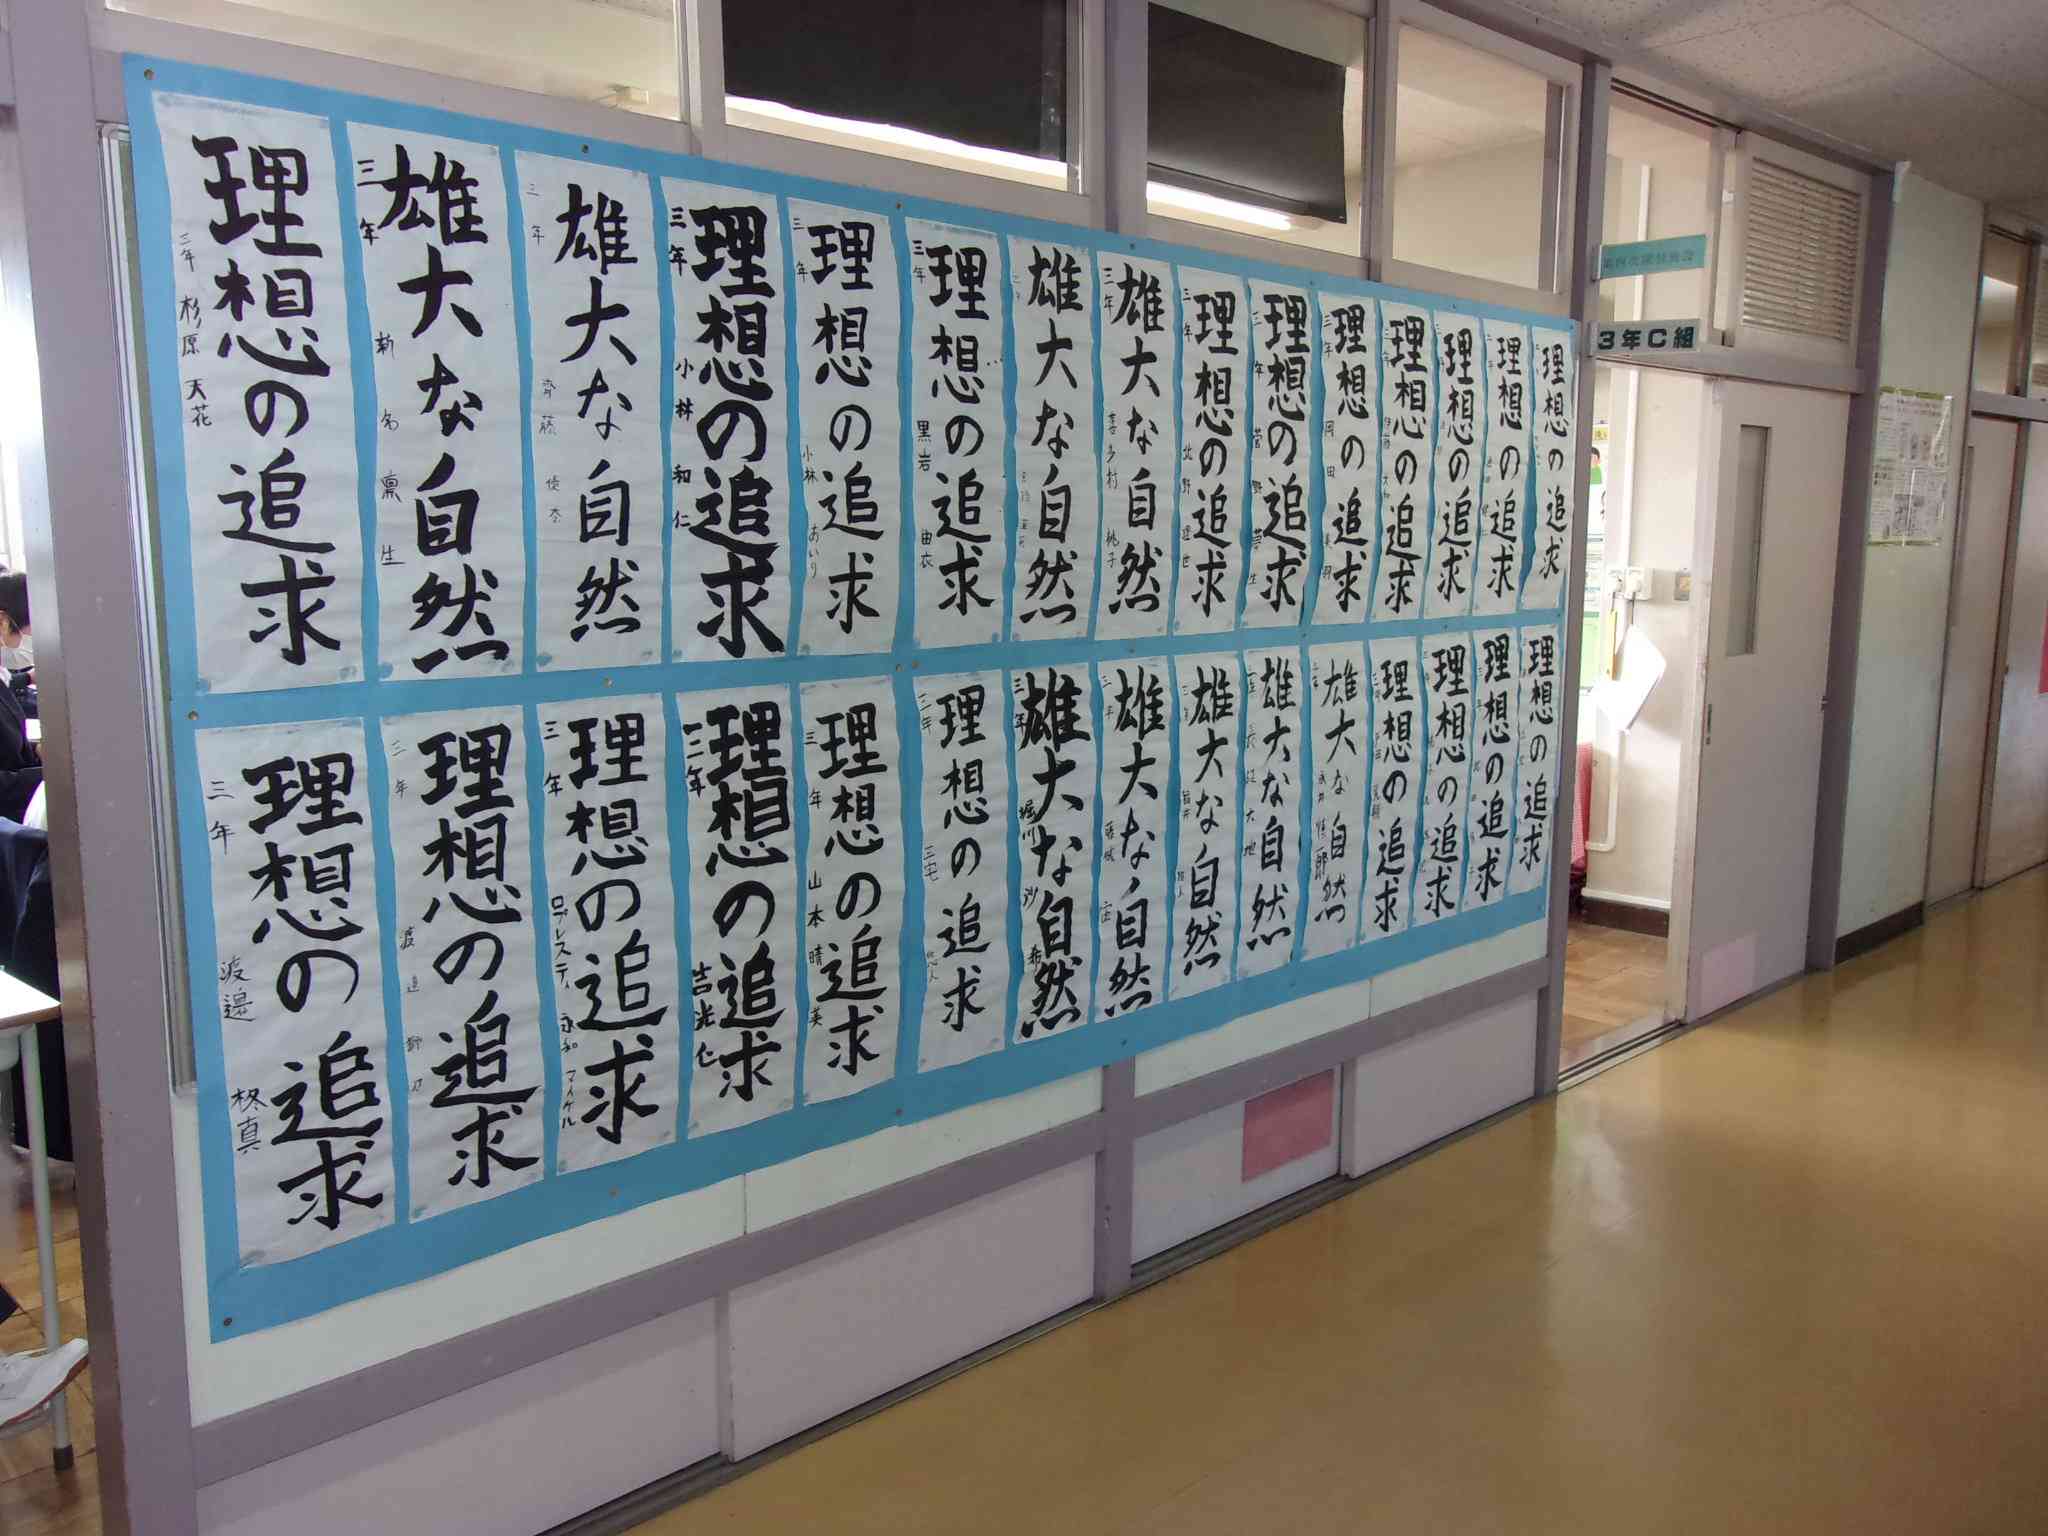 理想の追求
三年 杉原 天花
雄大な自然
三年 新名 凛生
雄大な自然
三年 齊藤
理想の追求
三年 小林 和仁
理想の追求
三年 小林 あいり
理想の追求
三年 黒岩 由衣
雄大な自然
雄大な自然
三年 喜多村 桃子
理想の追求
三年 北野
理想の追求
三年 菅野
理想の追求
三年 岡田 美羽
理想の追求
理想の追求
理想の追求
理想の追求
理想の追求
三年 渡邉 柊真
理想の追求
三年 渡邉
理想の追求
三年 ロプレスティ 永和 マイケル
理想の追求
三年 吉光 仁
理想の追求
三年 山本 晴美
理想の追求
三年 三宅 悠人
雄大な自然
三年 堀川 沙希
雄大な自然
三年
雄大な自然
三年
雄大な自然
大地
雄大な自然
永井 慎一郎
理想の追求
理想の追求
理想の追求
理想の追求
3年C組